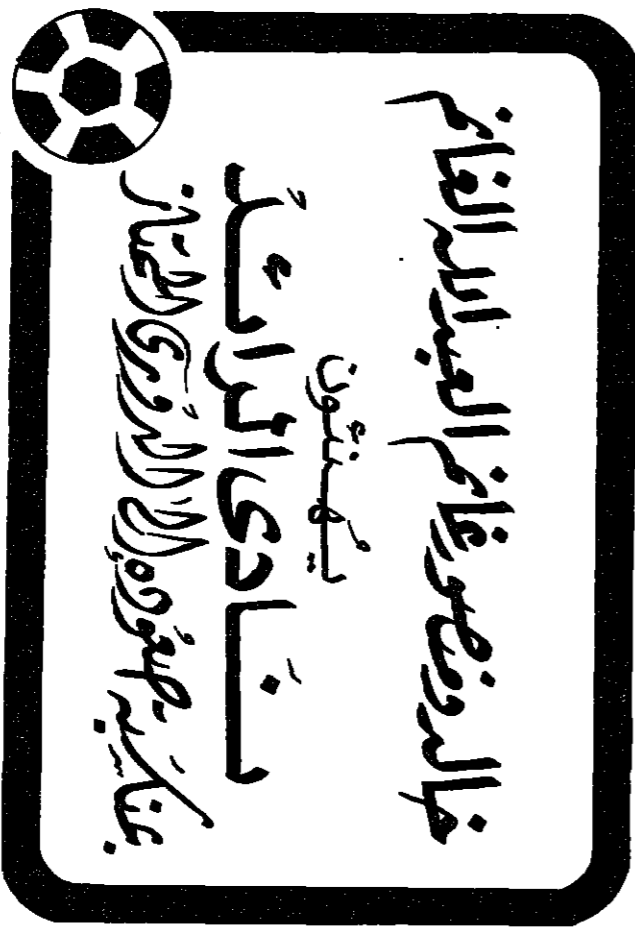 خالد ومنصور غانم العبدالله الغانم
يهنئون
نادي الرائد
بمناسبة صعوده إلى الدوري الممتاز